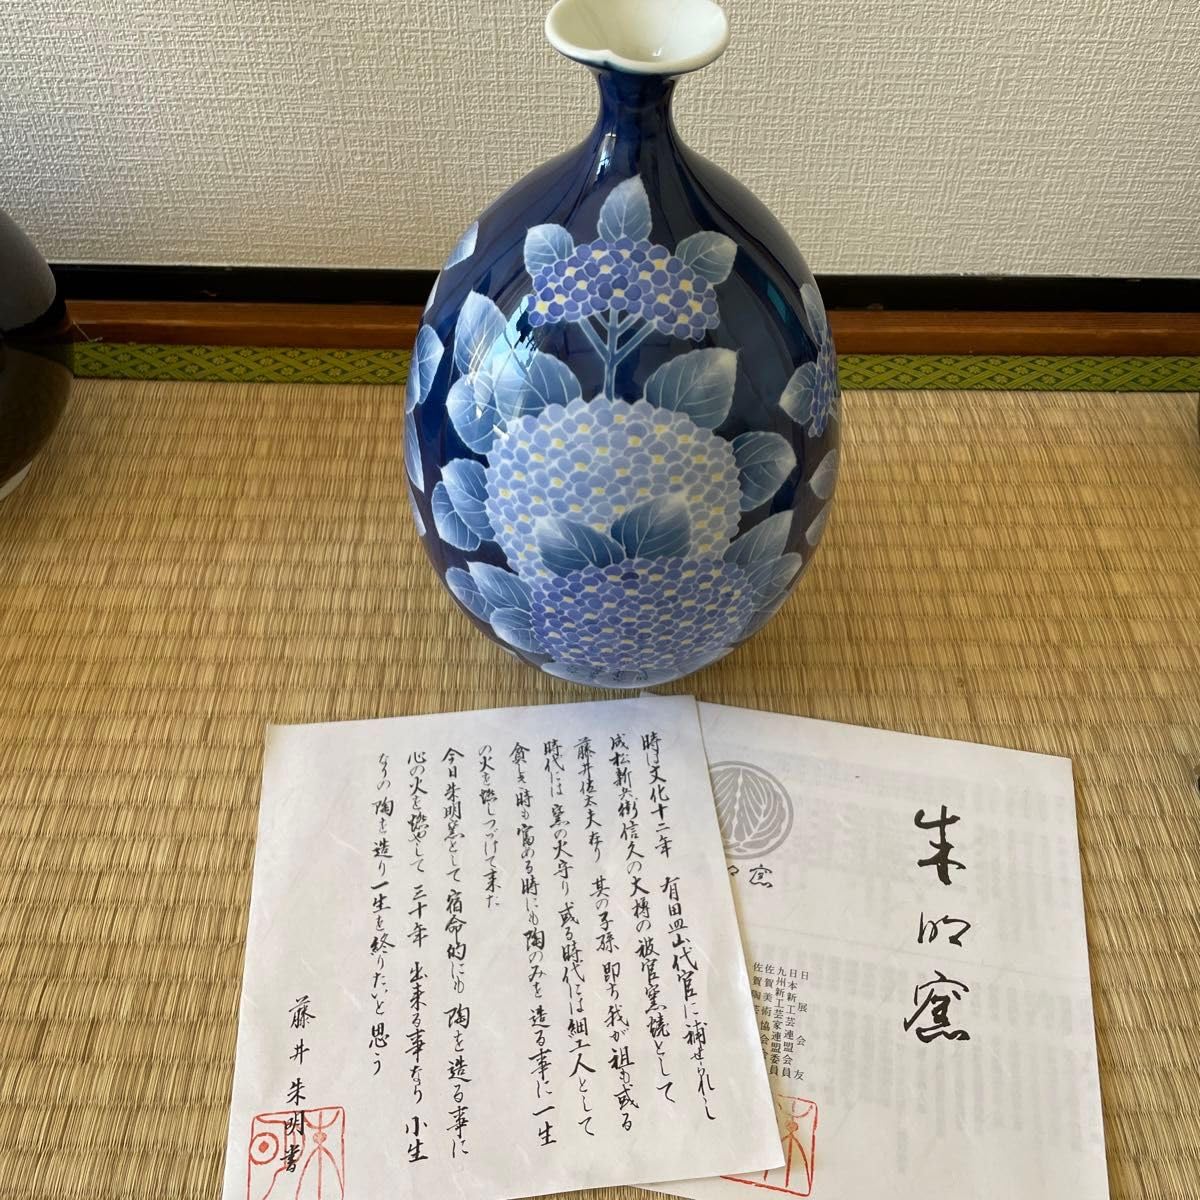 時は文化十二年 有田皿山代官に補せられし
成松新兵衛信久の大樽の被官窯焼として
藤井佐太夫なり 其の子孫 即ち我が祖も或る
時代には窯の火守り 或る時代には細工人として
貧しき時も富める時にも陶のみを造る事に一生
の火を燃しつづけて来た
今日朱明窯として宿命的にも陶を造る事に
心の火を燃やして三十年 出来る事なら小生
なりの陶を造り一生を終りたいと思う
藤井朱明書
朱明
朱明窯
日展会友
日本新工芸連盟会員
九州新工芸家連盟委員
佐賀美術協会会員
佐賀陶芸
窯